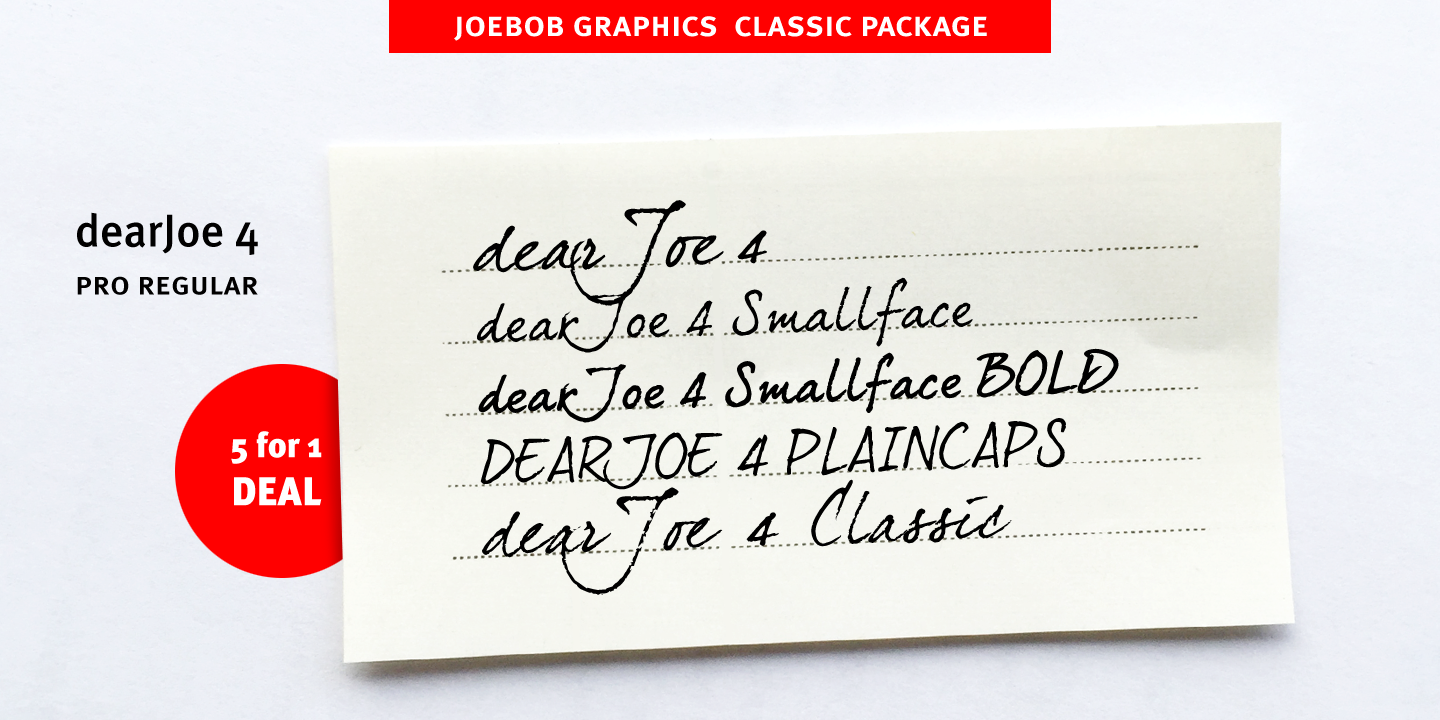 JOEBOB GRAPHICS CLASSIC PACKAGE
dearJoe 4
PRO REGULAR
5 for 1
DEAL
dear Joe 4
dear Joe 4 Smallface
dear Joe 4 Smallface BOLD
DEARJOE 4 PLAINCAPS
dear Joe 4 Classic